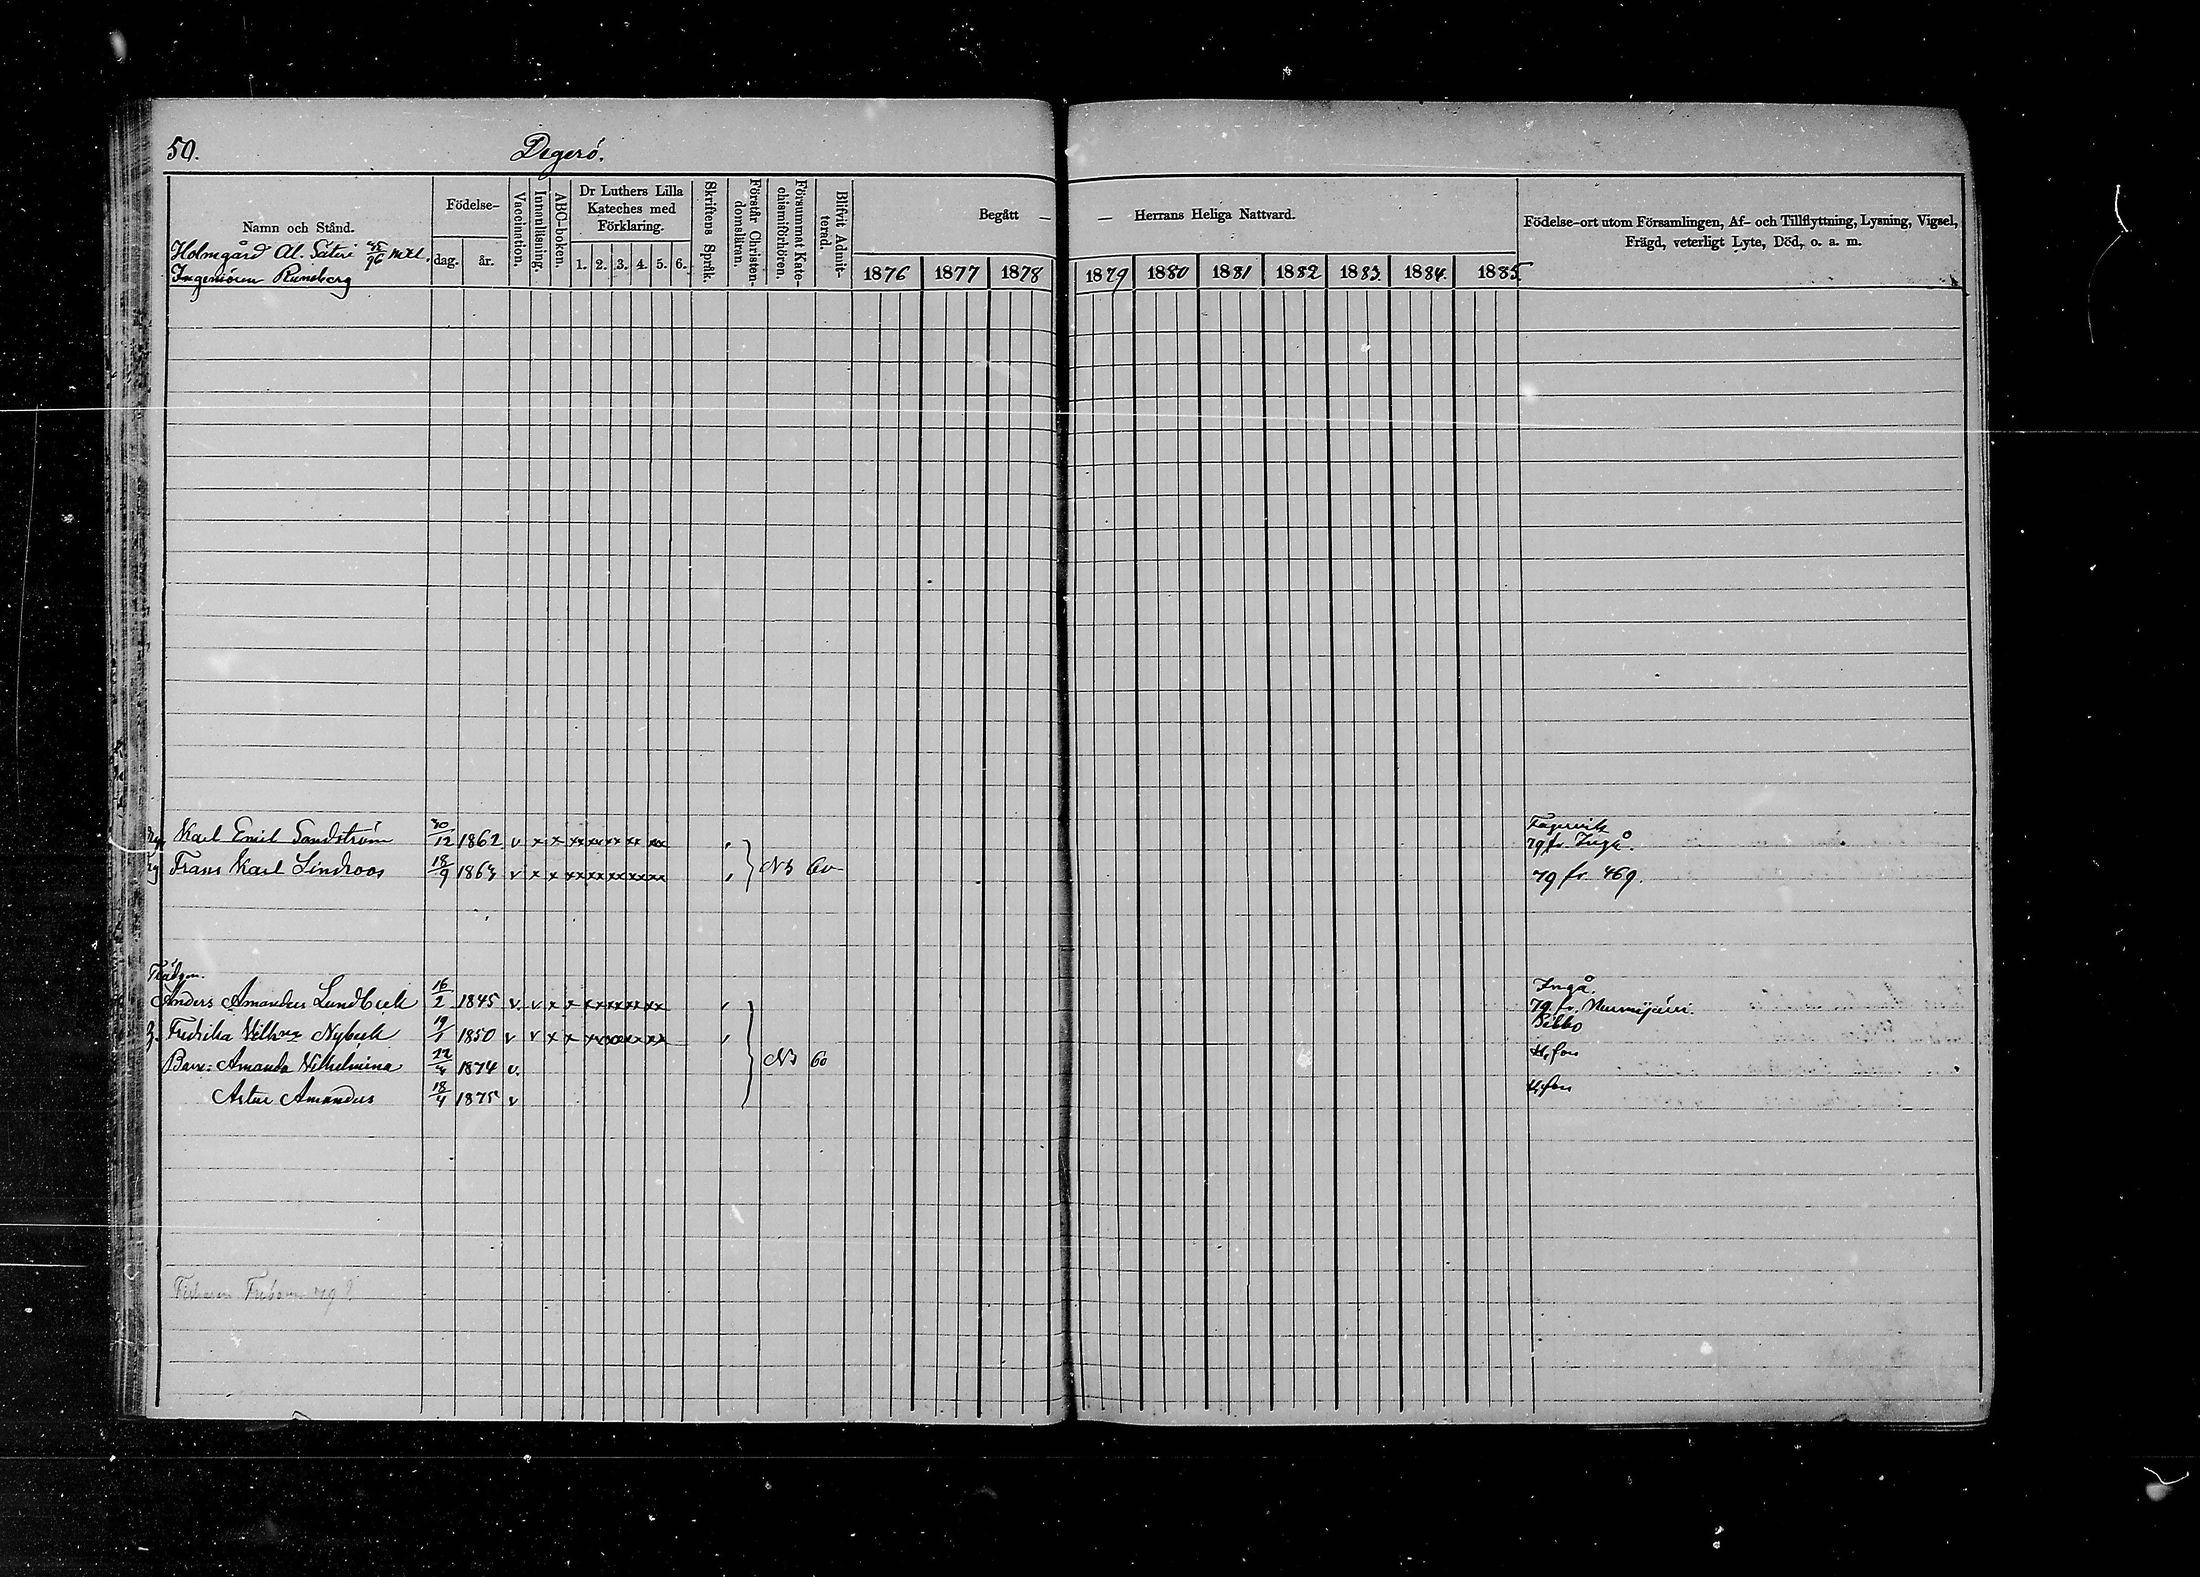 50. Degerö.
Namn och Stånd.
Holmgård Al. Säteri 45/96 mtl.
Ingeniören Runeberg
Födelse-
dag. år.
Vaccination.
Innanläsning.
ABC-boken.
Dr Luthers Lilla
Kateches med
Förklaring.
1. 2. 3. 4. 5. 6.
Skriftens Språk.
Förstår Christen-
domslåran.
Försummat Kate-
chismiförhören.
Blifvit Admit-
terad.
Begått — — Herrans Heliga Nattvard.
1876 1877 1878 1879 1880 1881 1882 1883. 1884. 1885
Födelse-ort utom Församlingen, Af- och Tillflyttning, Lysning, Vigsel,
Frägd, veterligt Lyte, Död, o. a. m.
Fagervik
Karl Emil Sandström 30/12 1862 v x x xx xx xx xx xx 79 fr. Ingå.
Frans Karl Lindroos 18/9 1863 v x x xx xx xx xx xx NB 60 79 fr. 469.
Trädgm. Ingå.
Anders Amandus Lundbeck 16/2 1845 v. v x x xx xx xx xx 79 fr. Nurmijärvi.
Sibbo
Fredrika Vilhna Nybeck 19/1 1850 v v x x xx xx xx xx
Barn: Amanda Vilhelmina 22/4 1874 v. NB 60 H,fors
Artur Amandus 18/4 1875 v H,fors